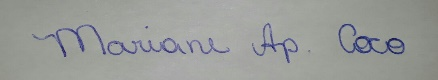 Mariane Ap. Coco